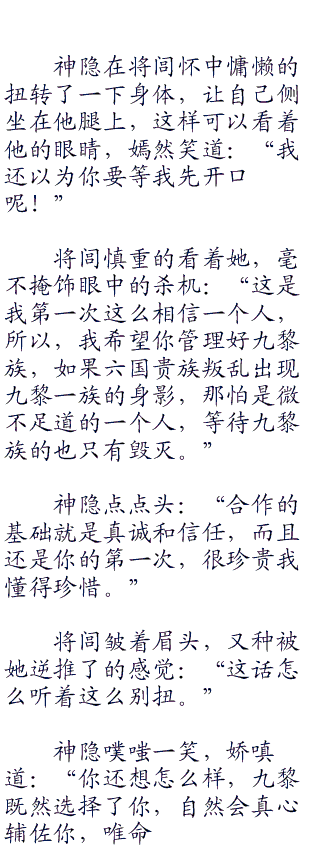 神隐在将闾怀中慵懒的
扭转了一下身体，让自己侧
坐在他腿上，这样可以看着
他的眼睛，嫣然笑道：“我
还以为你要等我先开口
呢！”
将闾慎重的看着她，毫
不掩饰眼中的杀机：“这是
我第一次这么相信一个人，
所以，我希望你管理好九黎
族，如果六国贵族叛乱出现
九黎一族的身影，那怕是微
不足道的一个人，等待九黎
族的也只有毁灭。”
神隐点点头：“合作的
基础就是真诚和信任，而且
还是你的第一次，很珍贵我
懂得珍惜。”
将闾皱着眉头，又种被
她逆推了的感觉：“这话怎
么听着这么别扭。”
神隐噗嗤一笑，娇嗔
道：“你还想怎么样，九黎
既然选择了你，自然会真心
辅佐你，唯命